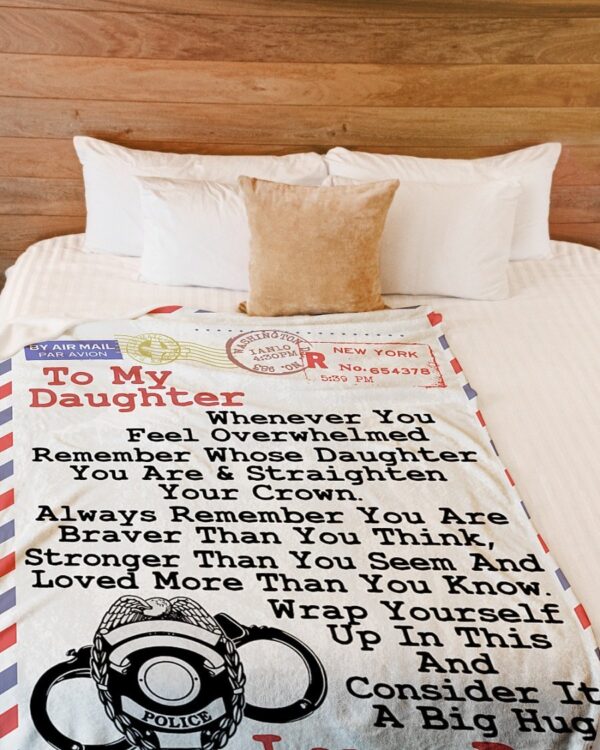 BY AIR MAIL
PAR AVION
WASHINGTON D
IAN10
4:30PM
NO. 983
R
NEW YORK
No. 654378
5:39 PM
To My
Daughter
Whenever You
Feel Overwhelmed
Remember Whose Daughter
You Are & Straighten
Your Crown.
Always Remember You Are
Braver Than You Think,
Stronger Than You Seem And
Loved More Than You Know.
Wrap Yourself
Up In This
And
Consider It
A Big Hug
POLICE